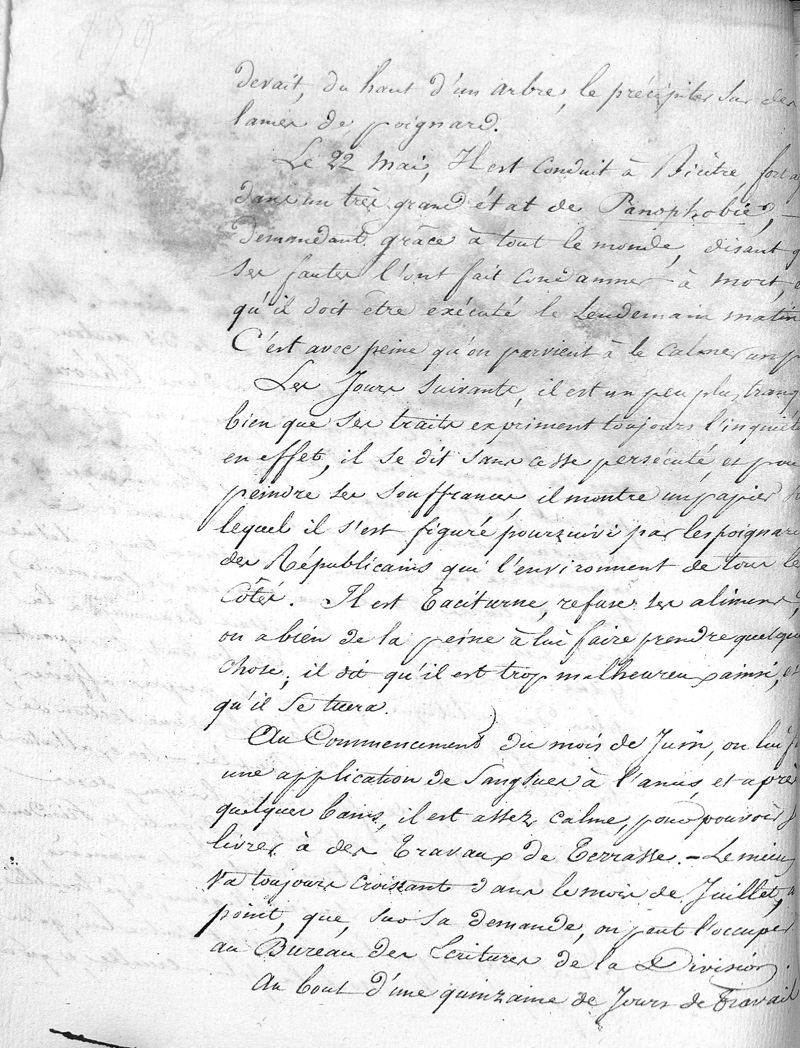 devait, du haut d'un arbre, le précipiter sur des
lames de poignard.
Le 22 Mai, Il est conduit à Bicêtre, fort a
dans un très grand état de Panophobie, —
Demandant grâce à tout le monde, disant q
ses fautes l'ont fait condamner à mort,
qu'il doit être exécuté le Lendemain matin
C'est avec peine qu'on parvient à le calmer un p
Les Jours suivants, il est un peu plus tranq
bien que ses traits expriment toujours l'inquiét
en effet, il se dit sans cesse persécuté, et pour
peindre ses souffrances, il montre un papier s
lequel il s'est figuré poursuivi par les poignard
des Républicains qui l'environnent de tous le
Côtés. Il est Taciturne, refuse ses aliments,
on a bien de la peine à lui faire prendre quelqu
chose; il dit qu'il est trop malheureux ainsi, et
qu'il se tuera.
Au Commencement du mois de Juin, on lui f
une application de Sangsues à l'anus, et aprè
quelques bains, il est assez calme, pour pouvoir s
livrer à des Travaux de Terrasse. — Le mieux
va toujours croissant dans le mois de Juillet, a
point, que, sur sa demande, on peut l'occuper
au Bureau des Écritures de la Division.
Au bout d'une quinzaine de Jours de Travail